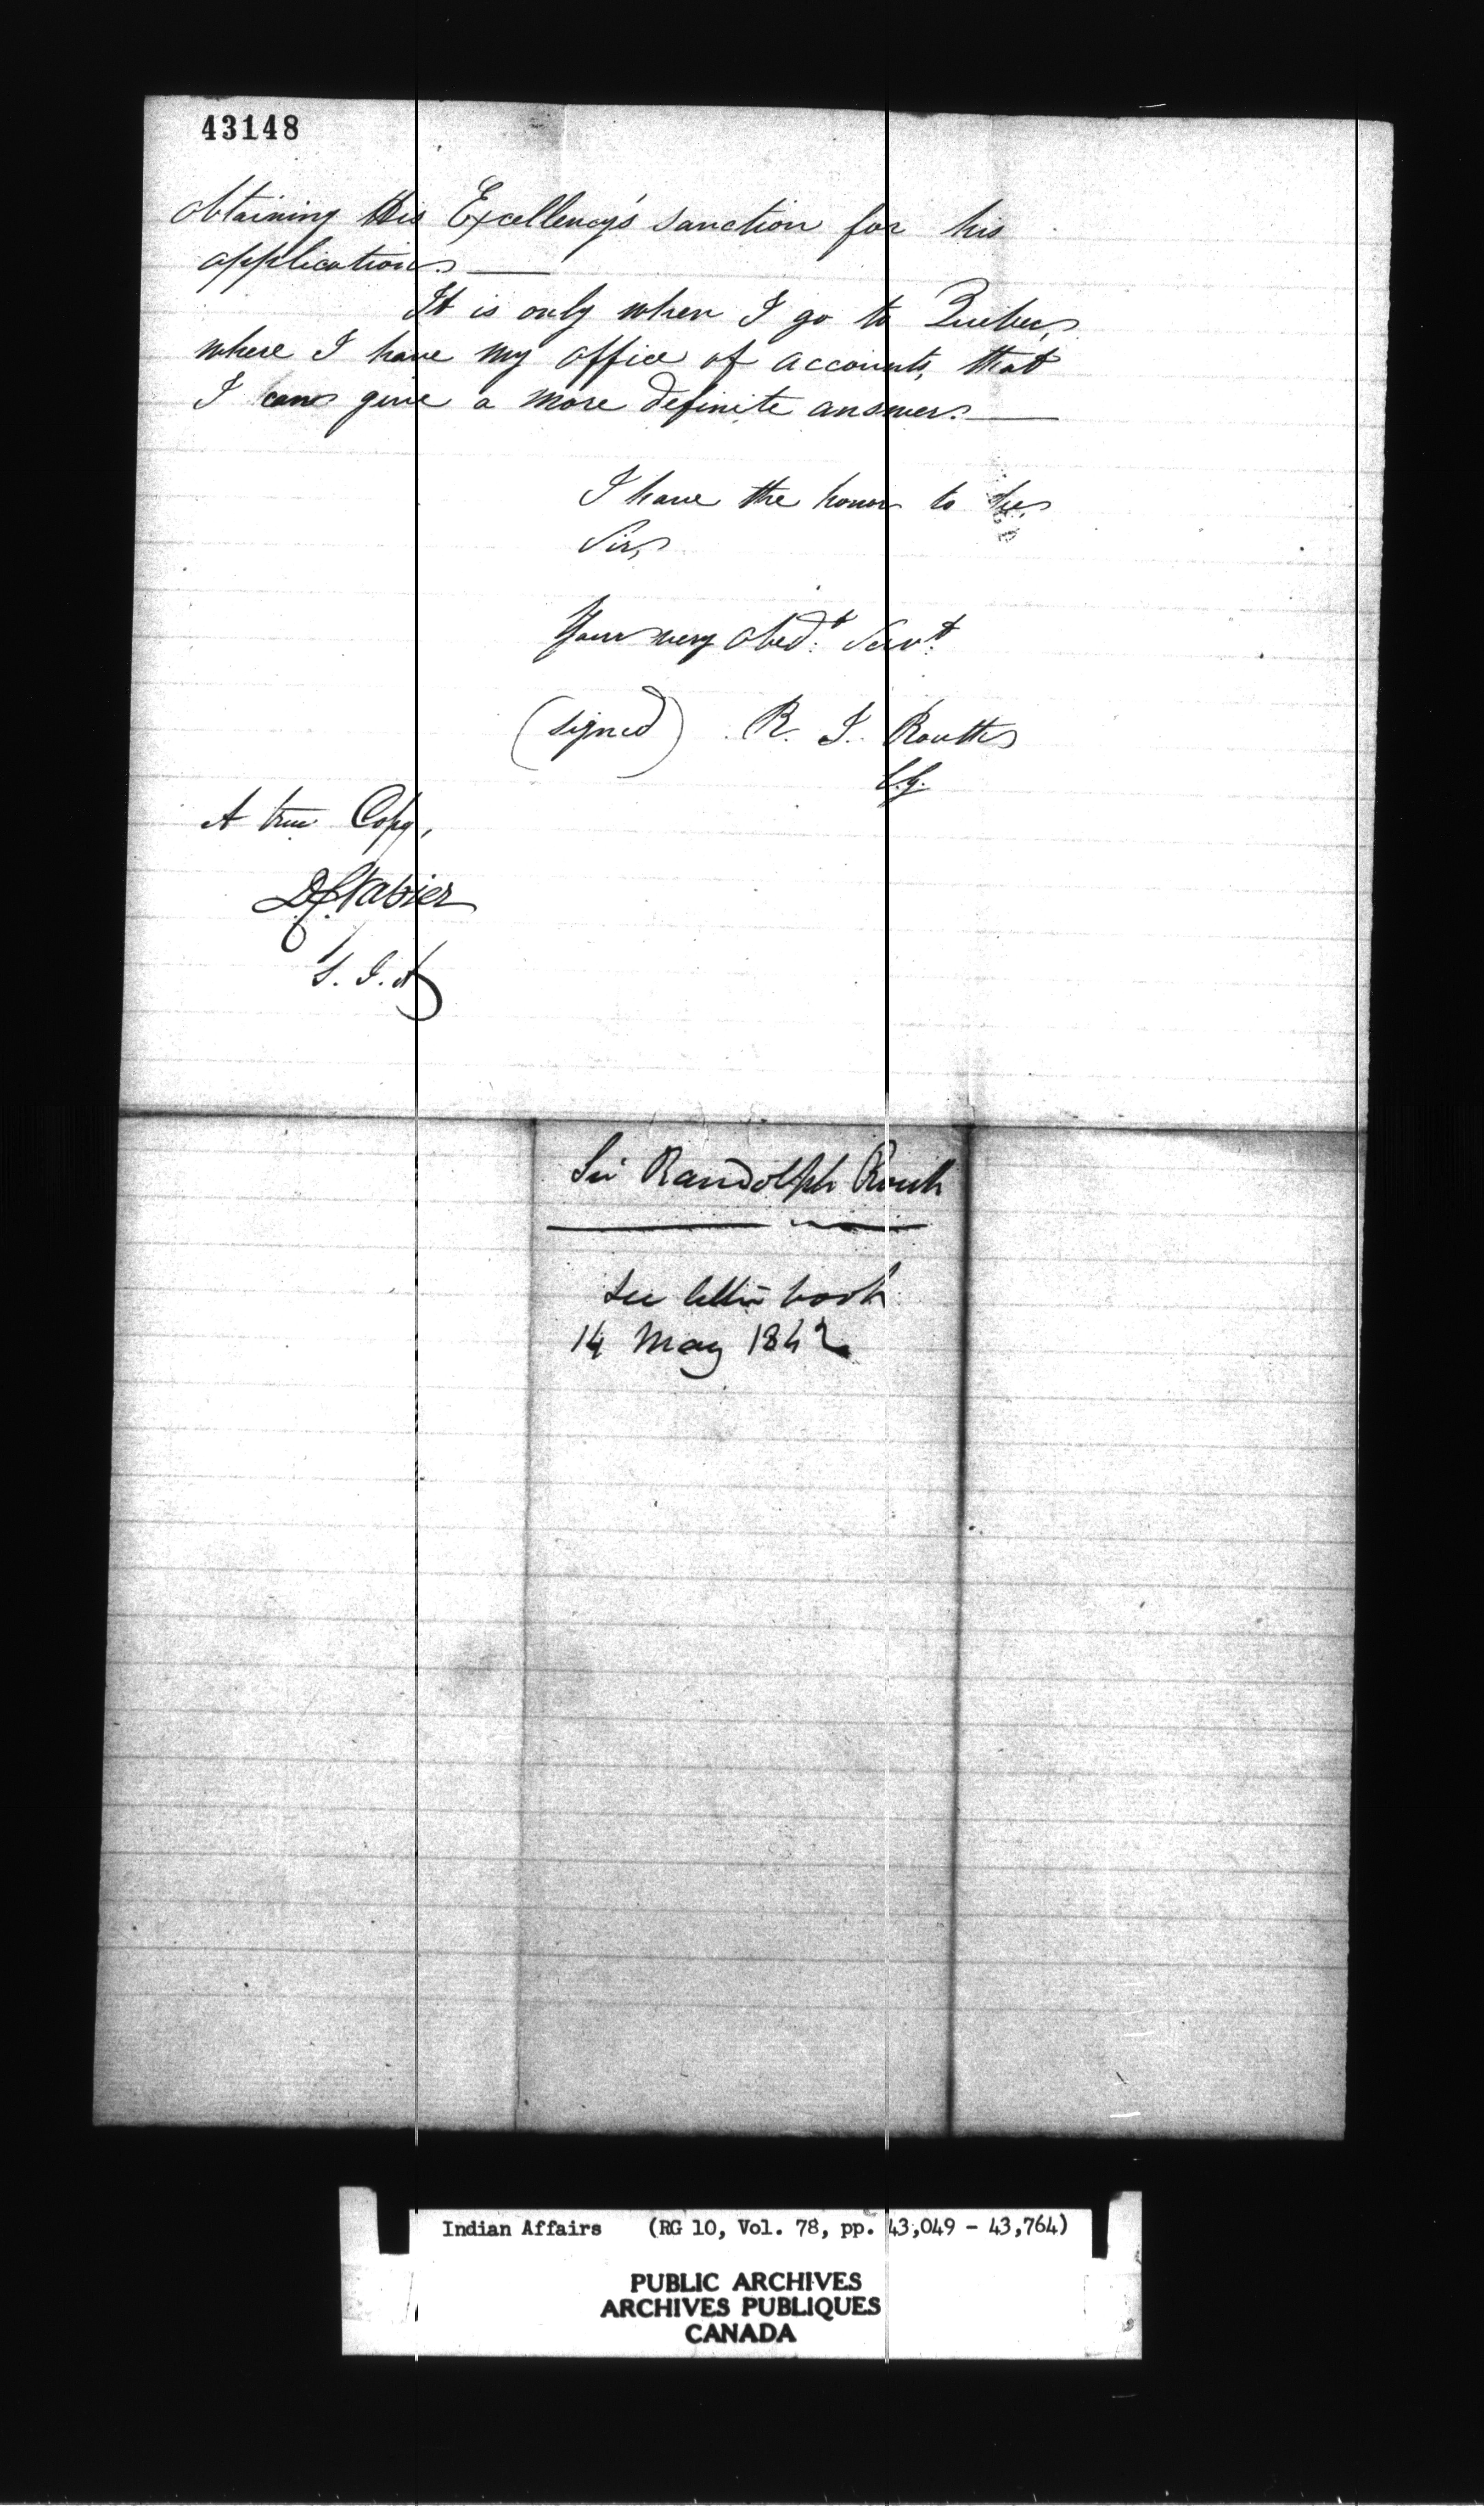 43148
obtaining His Excellency's sanction for his
application.
It is only when I go to Quebec,
where I have my office of accounts, that
I can give a more definite answer.
I have the honor to be,
Sir,
Your very obedt. Servt.
(signed) R. I. Routh
C.G.
A true Copy,
D C Napier
S. I. A
Sir Randolph Routh
See letter book
14 May 1842
Indian Affairs (RG 10, Vol. 78, pp. 43,049 - 43,764)
PUBLIC ARCHIVES
ARCHIVES PUBLIQUES
CANADA